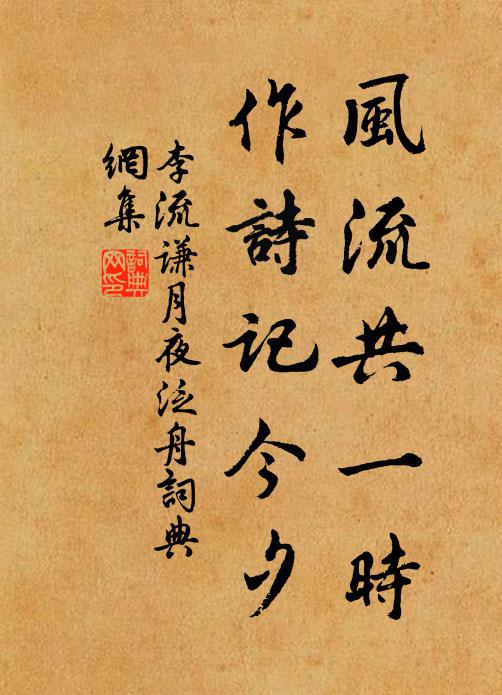 風流共一時
作詩記今夕
李流谦月夜泛舟詞典
網集
詞典
网印